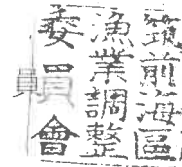 筑前海區
漁業調整
委員會
員